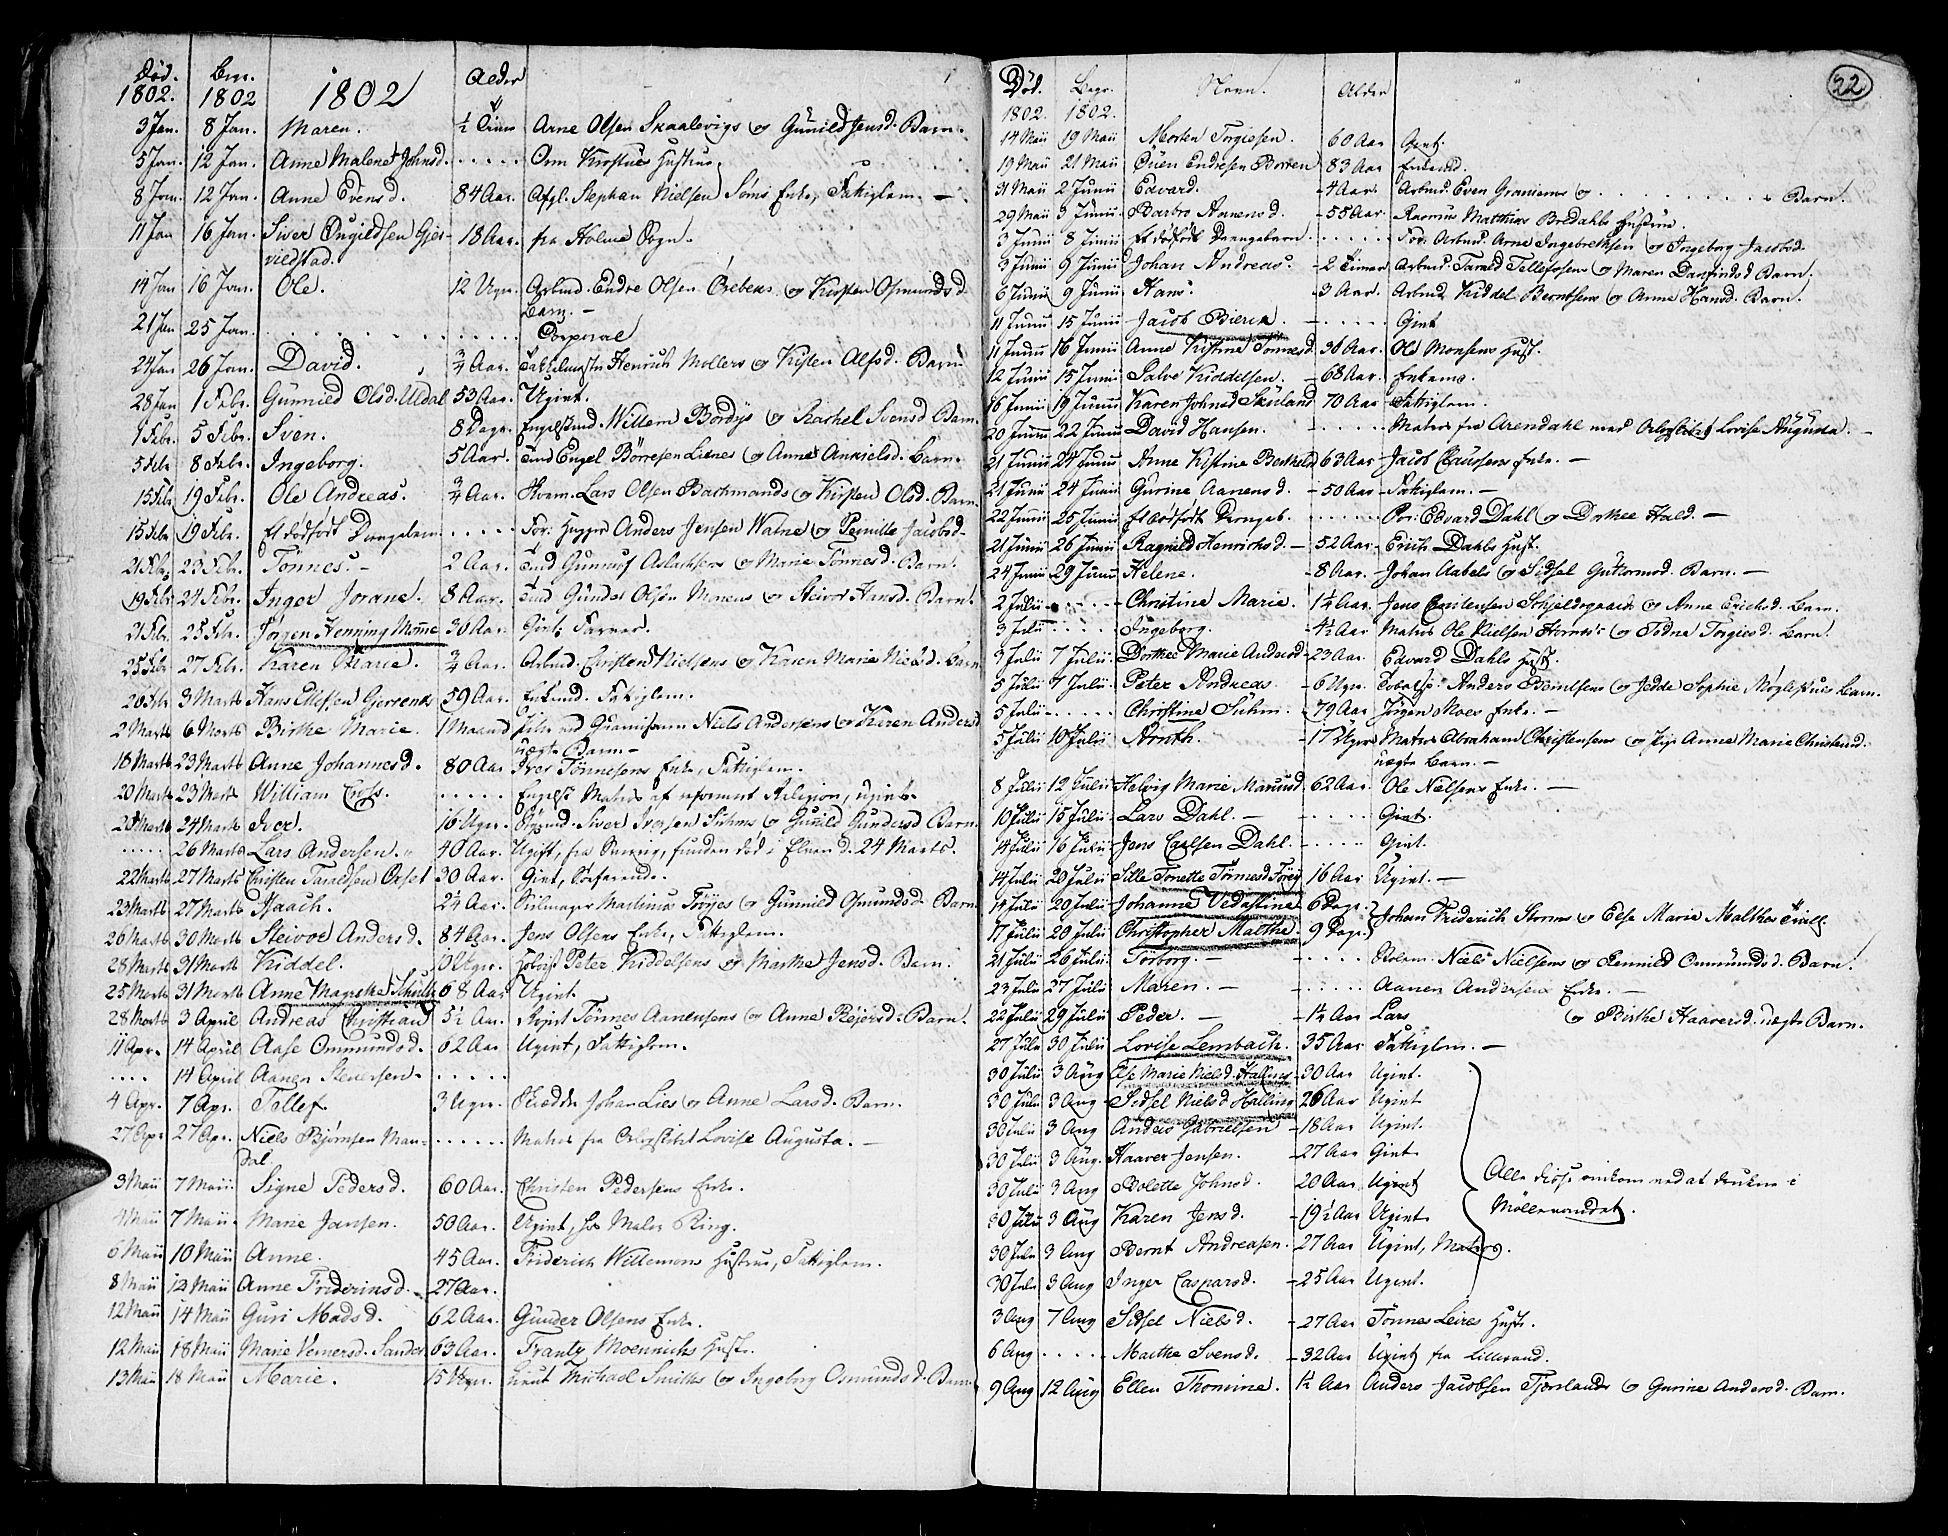 Død. Begr. Alder
1802. 1802 1802
3 Jan. 8 Jan. Maren. ½ Time Arne Olsen Skaalevigs og Gunild Jensd. Barn.
5 Jan. 12 Jan. Anne Malene Johnsd. . . . . . Orm Hustrue.
8 Jan. 12 Jan. Anne Evensd. 84 Aar. Afgl. Stephan Nielsen Søms Enke, Fattiglem. —
11 Jan 16 Jan. Siver Ongildsen Gjer- 18 Aar. fra Holme Sogn.
viedstad.
14 Jan 16 Jan. Ole. 12 Uger. Arbmd. Endre Olsen Örebeks og Kirsten Osmundsd.
Barn. —
21 Jan 25 Jan. . . . . . . . . . . . .
Corporal
24 Jan 26 Jan. David. ¾ Aar. Henrich Mollers og Kirsten Alfsd. Barn
28 Jan 1 Febr. Gunnild Olsd. Uldal 53 Aar. Ugivt.
1 Febr. 5 Febr. Sven. 8 Dage. Willem Bordys og Rachel Svensd Barn.
5 Febr 8 Febr. Ingeborg. 5 Aar. Engel Börresen Lienes og Anne Barn.
15 Febr 19 Febr. Ole Andreas. ¾ Aar. Lars Olsen Bachmands og Kirsten Olsd. Barn
15 Febr 19 Febr. Et dødfødt Drengebarn . . . . For: Hugger Anders Jensen Watne og Pernille Jacobsd —
21 Feb. 23 Febr. Tönnes. — 2 Aar. Gunnuf Aslachsens og Marie Tönnesd. Barn.
19 Febr 24 Febr. Inger Jorane. 8 Aar. Gunder Olsen og Hansd. Barn.
21 Febr. 25 Febr. Jørgen Henning Momme 30 Aar. Givt, Farver.
25 Febr. 27 Febr. Karen Marie. ¾ Aar. Arbmd. Christen Nielsens og Karen Marie Nielsd. Barn
26 Febr 3 Marts Hans Ellefsen 59 Aar. Enkemd. Fattiglem.
2 Marts 6 Marts Birthe Marie. 1 Maaned Niels Andersens og Karen Andersd
uægte Barn —
18 Marts 23 Marts Anne Johannesd. 80 Aar Iver Tönnesens Enke, Fattiglem.
20 Marts 23 Marts William Cross. . . . . . Engelsk Matros af reformert Religion, ugivt.
20 Marts 24 Marts Iver. 16 Uger. Siver Iversen Suhms og Gunild Gundersd Barn.
. . . . . 26 Marts Lars Andersen. 40 Aar. Ugift, fra Danzig, funden død i Elven d. 24 Marts.
22 Marts 27 Marts Christen Taraldsen 30 Aar. Givt, Søefarende.
23 Marts 27 Marts Haach. 2¼ Aar. Seilmager Martinus Tröyes og Gunnild Osmundsd. Barn
26 Marts 30 Marts Steivor Andersd. 84 Aar. Jens Olsens Enke, Fattiglem.
28 Marts 31 Marts Kiddel. 10 Uger. Peter Kiddelsens og Marthe Jensd. Barn.
25 Marts 31 Marts Anne Magrethe Schultz 68 Aar Ugivt
28 Marts 3 April Andreas Christian 5½ Aar. Tönnes Aanensens og Anne Rejersd. Barn.
11 Apr. 14 April Aase Ommundsd. 62 Aar Ugivt, Fattiglem.
. . . . 14 April Aanen . . . . .
4 Apr. 7 Apr. Tellef. 3 Uger. Skredder Johan Lies og Anne Larsd. Barn.
27 Apr 27 Apr. Niels Bjørnsen Man- . . . . . . Matros fra Orlogskibet Lovise Augusta. —
dal
3 Maii 7 Maii. Signe Pedersd. 60 Aar. Christen Pedersens Enke.
4 Maii 7 Maii. Marie Jansen. 50 Aar. Ugivt, hos Maler Ring.
6 Maii 10 Maii Anne. 45 Aar. Friderich Willemsens Hustrue, Fattiglem.
8 Maii 12 Maii Anne Friderinsd. 27 Aar.
12 Maii 14 Maii Guri Madsd. 62 Aar. Gunder Olsens Enke.
12 Maii 18 Maii Marie Vernersd. Sander 63 Aar. Frantz Moennichs Hustr.
13 Maii 18 Maii Marie. 15 Uger. Michael Smiths og Ingeborg Osmundsd. Barn.
22
Død. Begr. Navn. Alder
1802 1802.
14 Maii 19 Maii Morten Torgiesen. 60 Aar Givt.
19 Maii 21 Maii Ouen Endresen Borten 83 Aar Enkemd.
31 Maii 2 Junii Edvard. 4 Aar. Arbmd. Even Graniems og . . . . . . . . Barn.
29 Maii 3 Junii. Barbro Aanensd. 55 Aar. Rasmus Matthias Bredahls Hustrue.
3 Junii 8 Junii Et dødfødt Drengebarn. . . . . . For: Arbmd. Arne Ingebrethsen og Ingeborg Jacobsd.
3 Junii 9 Junii Johan Andreas. 2 Timer Arbmd. Tarald Tellefsens og Maren Barn.
6 Junii 9 Junii Hans. 3 Aar. Arbmd. Kiddel Berntsens og Anne Hansd. Barn.
11 Junii 15 Junii Jacob Bierck. — . . . . Givt
11 Junii 16 Junii Anne Kistine Tønnesd. 36 Aar. Ole Monsens Hust.
12 Junii 15 Junii Salve Kiddelsen. 68 Aar. Enkemd.
16 Junii 19 Junii Karen Johnsd 70 Aar Fattiglem.
20 Junii 22 Junii David Hansen. . . . . . Matros fra Arendahl med Orlogskibet Lovise Augusta. —
21 Junii 24 Junii Anne Kistine Berthelsd 63 Aar Jacob Claussens Enke. —
21 Junii 24 Junii Gurine Aanensd. 50 Aar Fattiglem. —
22 Junii 25 Junii Et dødfødt Drengeb. . . . . . For: Edvard Dahl og Dorthee Hald. —
21 Junii 26 Junii Ragnild Henrichsd. — 52 Aar Erich Dahls Hust.
24 Junii 29 Junii Helene. 8 Aar. Johan Aabels og Sidsel Guttormsd. Barn. —
2 Julii . . . . . Christine Marie. 1¼ Aar. Jens og Anne Erichsd. Barn.
3 Julii . . . . . Ingeborg. 4½ Aar Matros Ole Nielsen og Todne Torgiesd. Barn.
3 Julii 7 Julii. Dorthee Marie Andersd. 23 Aar. Edvard Dahls Hust.
5 Julii 7 Julii. Peter Andreas 6 Uger. Anders Berntsens og Jedde Sophie Møglestues Barn.
5 Julii . . . . . Christine Suhm. 79 Aar Jörgen Moes Enke. —
5 Julii 10 Julii Arnth. 17 Uger Matros Abraham Christensens og Pige Anne Marie Christensd.
uægte Barn. —
8 Julii 12 Julii Helvig Marie 62 Aar. Ole Nielsens Enke. —
10 Julii 15 Julii. Lars Dahl. — . . . . . Givt.
14 Julii 16 Julii Jens Carlsen Dahl. — . . . . Givt.
14 Julii 20 Julii Sille Tonette Tönnesd 16 Aar Ugivt. —
14 Julii 20 Julii Johanne Vedastine 6 Dage.
17 Julii 20 Julii Christopher Malthe. 9 Dage. Johan Friderich Storms og Else Marie Malthes Tvill.
21 Julii 26 Julii Torborg. — . . . . . Niels Nielsens og Ommundsd. Barn.
23 Julii 27 Julii Maren. — . . . . . Aanen Andersens Enke. —
22 Julii 29 Julii Peder. — 1¼ Aar Lars og Birthe Haaversd. uægte Barn.
27 Julii 30 Julii Lovise Lembach. 35 Aar Fattiglem. —
30 Julii 3 Aug Else Marie Nielsd. Halling 30 Aar Ugivt.
30 Julii 3 Aug Sidsel Nielsd Halling 26 Aar Ugivt
30 Julii 3 Aug Anders Gabrielsen 18 Aar Ugivt.
30 Julii 3 Aug. Haaver Jensen. 27 Aar Givt.
30 Julii 3 Aug Bolette Johnsd. 20 Aar Ugivt
30 Julii 3 Aug Karen Jensd. 19½ Aar Ugivt
30 Julii 3 Aug Bernt Andreasen. 27 Aar Ugivt, Matros.
30 Julii 3 Aug Inger Caspersd. 25 Aar Ugivt.
Alle disse omkom ved at drukne i
Möllevandet.
3 Aug 7 Aug Sidsel Nielsd. 27 Aar Tönnes Leires Hust.
6 Aug . . . . Marthe Svensd. 32 Aar Ugivt fra Lillesand.
9 Aug 12 Aug Ellen Thomine. 1¼ Aar Anders Jacobsen Tjorslands og Gurine Andersd. Barn.